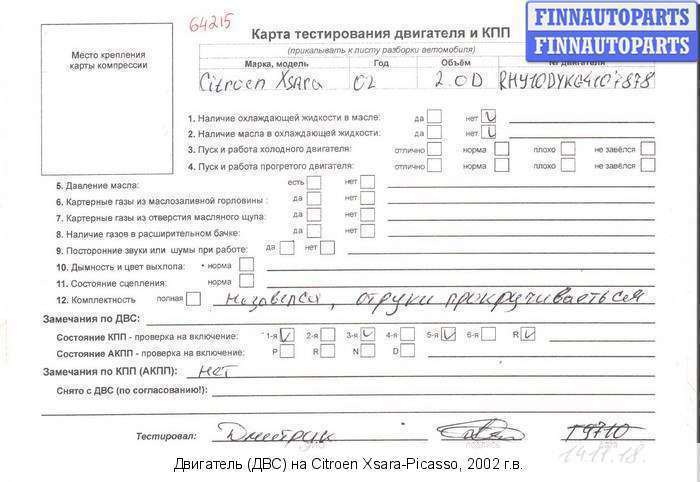 64215
Карта тестирования двигателя и КПП
FINNAUTOPARTS
FINNAUTOPARTS
(прикалывать к листу разборки автомобиля)
Место крепления
карты компрессии
Марка, модель Год Объём № двигателя
Citroen Xsara 02 2.0D RHY10DYKG4107878
1. Наличие охлаждающей жидкости в масле: да нет
2. Наличие масла в охлаждающей жидкости: да нет
3. Пуск и работа холодного двигателя: отлично норма плохо не завёлся
4. Пуск и работа прогретого двигателя: отлично норма плохо не завёлся
5. Давление масла: есть нет
6. Картерные газы из маслозаливной горловины : да нет
7. Картерные газы из отверстия масляного щупа: да нет
8. Наличие газов в расширительном бачке: да нет
9. Посторонние звуки или шумы при работе: да нет
10. Дымность и цвет выхлопа: норма
11. Состояние сцепления: норма
12. Комплектность полная незавелся, отруки прокручиваеться
Замечания по ДВС:
Состояние КПП - проверка на включение: 1-я 2-я 3-я 4-я 5-я 6-я R
Состояние АКПП - проверка на включение: P R N D
Замечания по КПП (АКПП): нет
Снято с ДВС (по согласованию!):
Тестировал: Дмитрук T9710
14.11.18.
Двигатель (ДВС) на Citroen Xsara-Picasso, 2002 г.в.